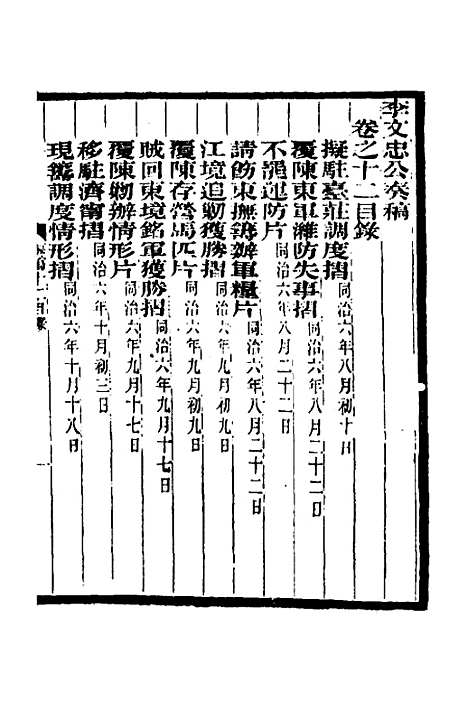 李文忠公奏稿
卷之十二目錄
擬駐臺莊調度摺 同治六年八月初十日
覆陳東軍濰防失事摺 同治六年八月二十二日
不邊運防片 同治六年八月二十二日
請飭東撫籌辦軍糧片 同治六年八月二十二日
江境追勦獲勝摺 同治六年九月初九日
覆陳存營馬匹片 同治六年九月初九日
賊回東境銘軍獲勝摺 同治六年九月十七日
覆陳勦辦情形片 同治六年九月十七日
移駐濟甯摺 同治六年十月初三日
現籌調度情形摺 同治六年十月十八日
奏稿十二目錄
一